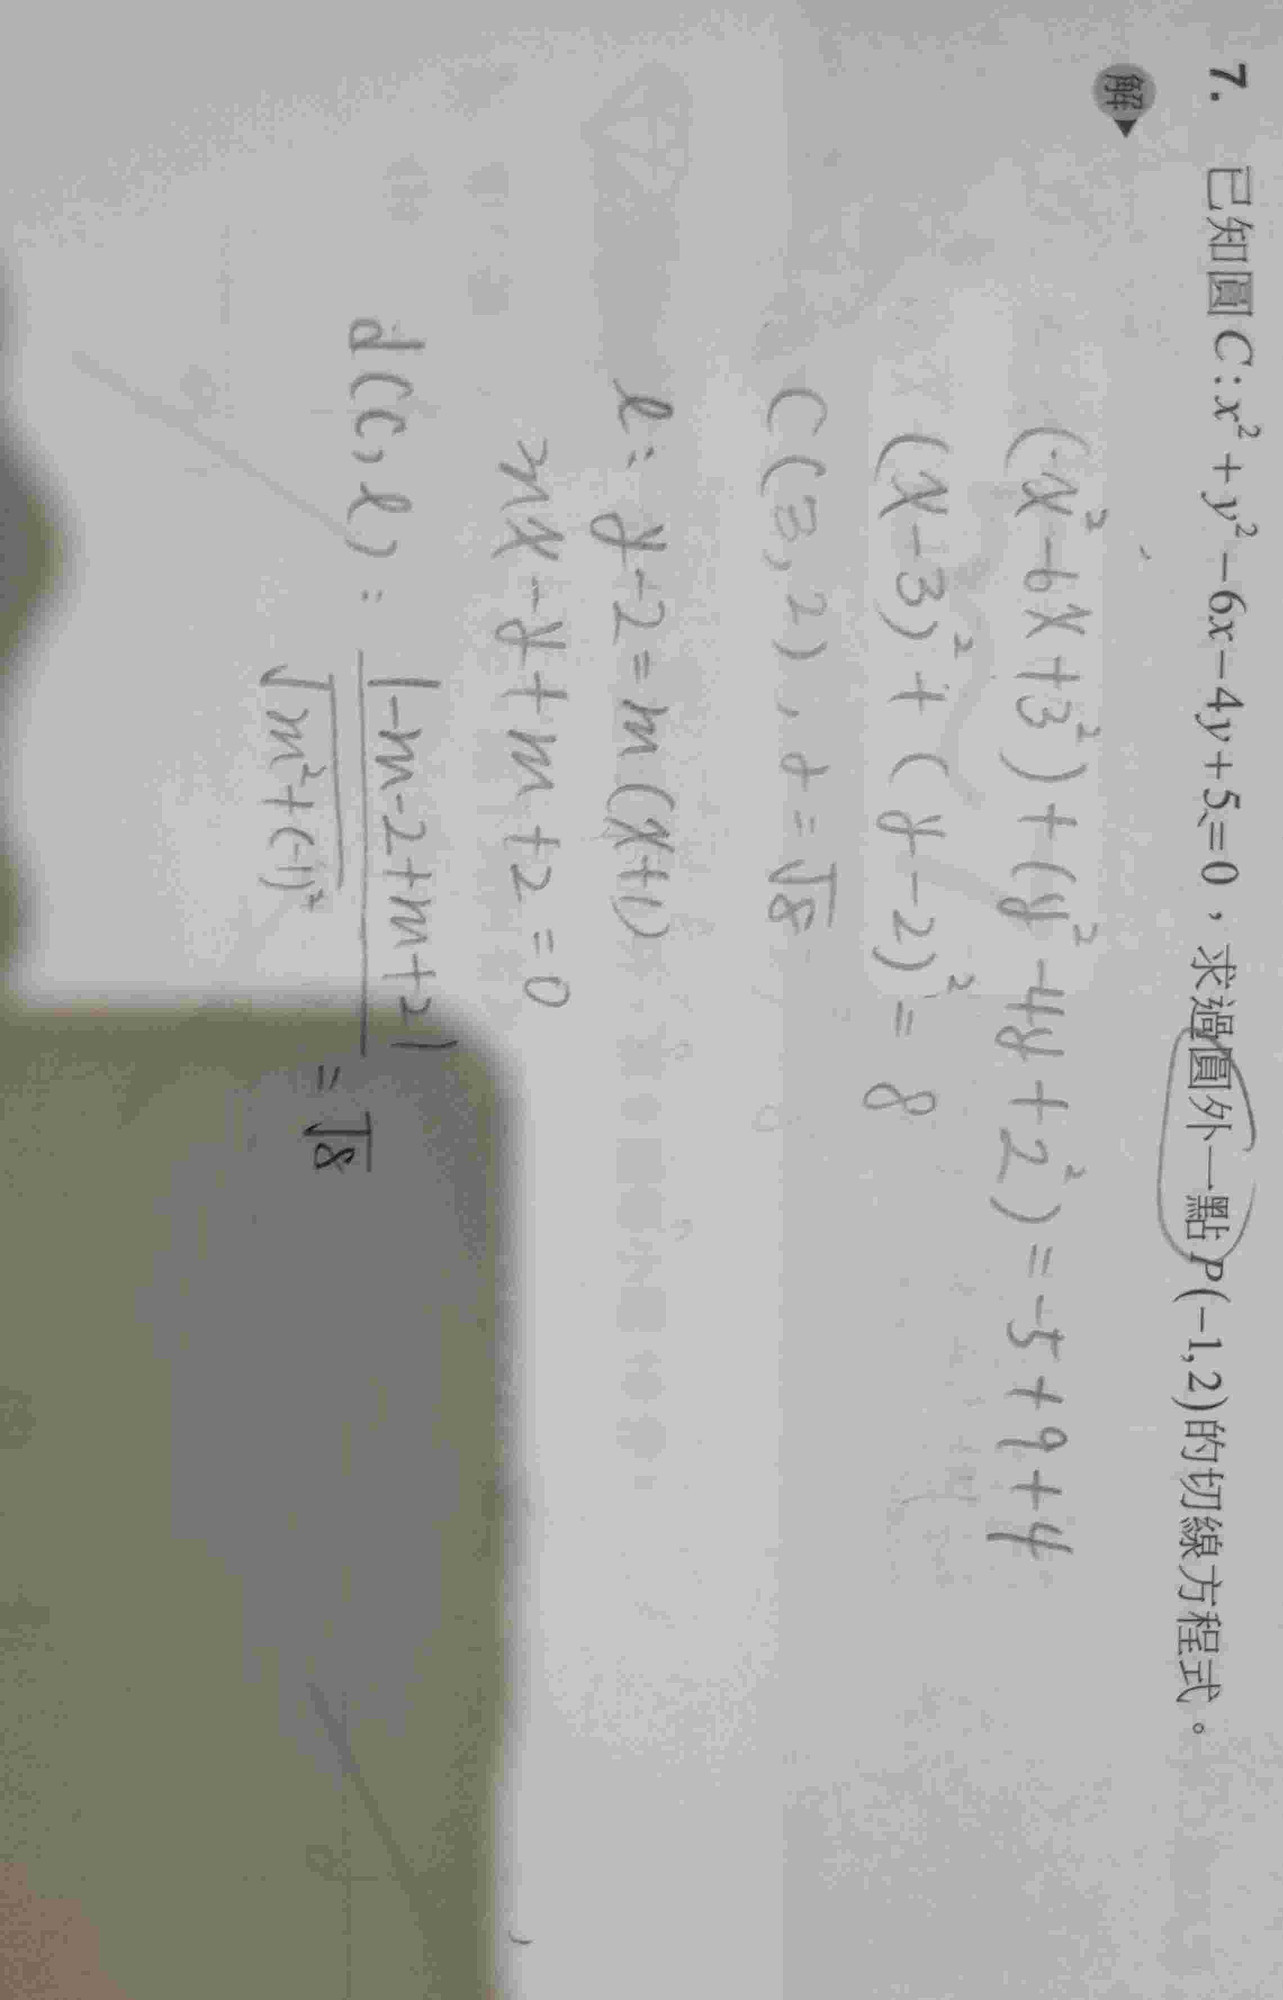 7. 已知圓C:x²+y²-6x-4y+5=0，求過圓外一點P(-1,2)的切線方程式。
解
(x²-6x+3²)+(y²-4y+2²)=-5+9+4
(x-3)²+(y-2)²=8
C(3,2), r=√8
l: y-2=m(x+1)
mx-y+m+2=0
d(C,l): |-m-2+m+2|/√(m²+(-1)²) = √8